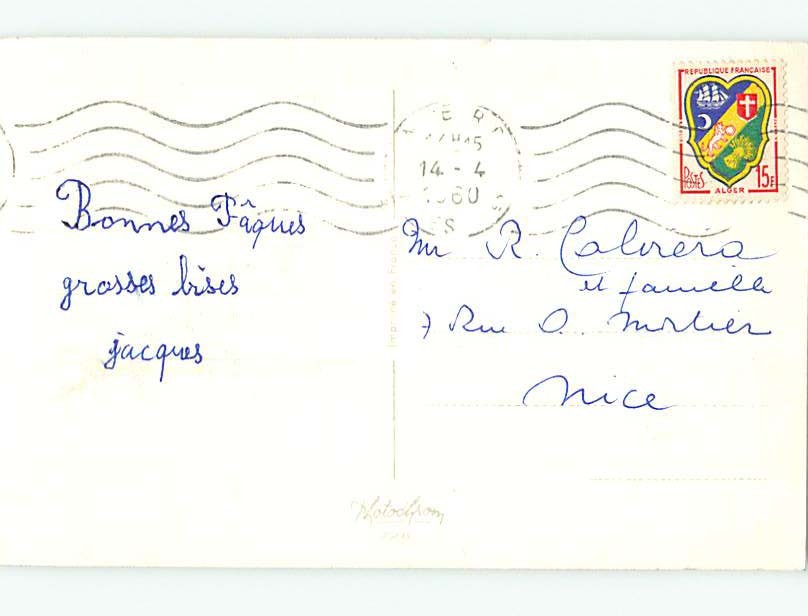 Bonnes Pâques
grosses bises
jacques
14 - 4
1960
REPUBLIQUE FRANÇAISE
POSTES
15F
ALGER
Mr R. Cabrera
et famille
7 Rue O. Mortier
Nice
Imprimé en France
Photochrom